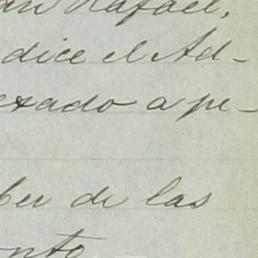 an Rafael,
dice el Ad-
exado a pe-
ber de las
onto